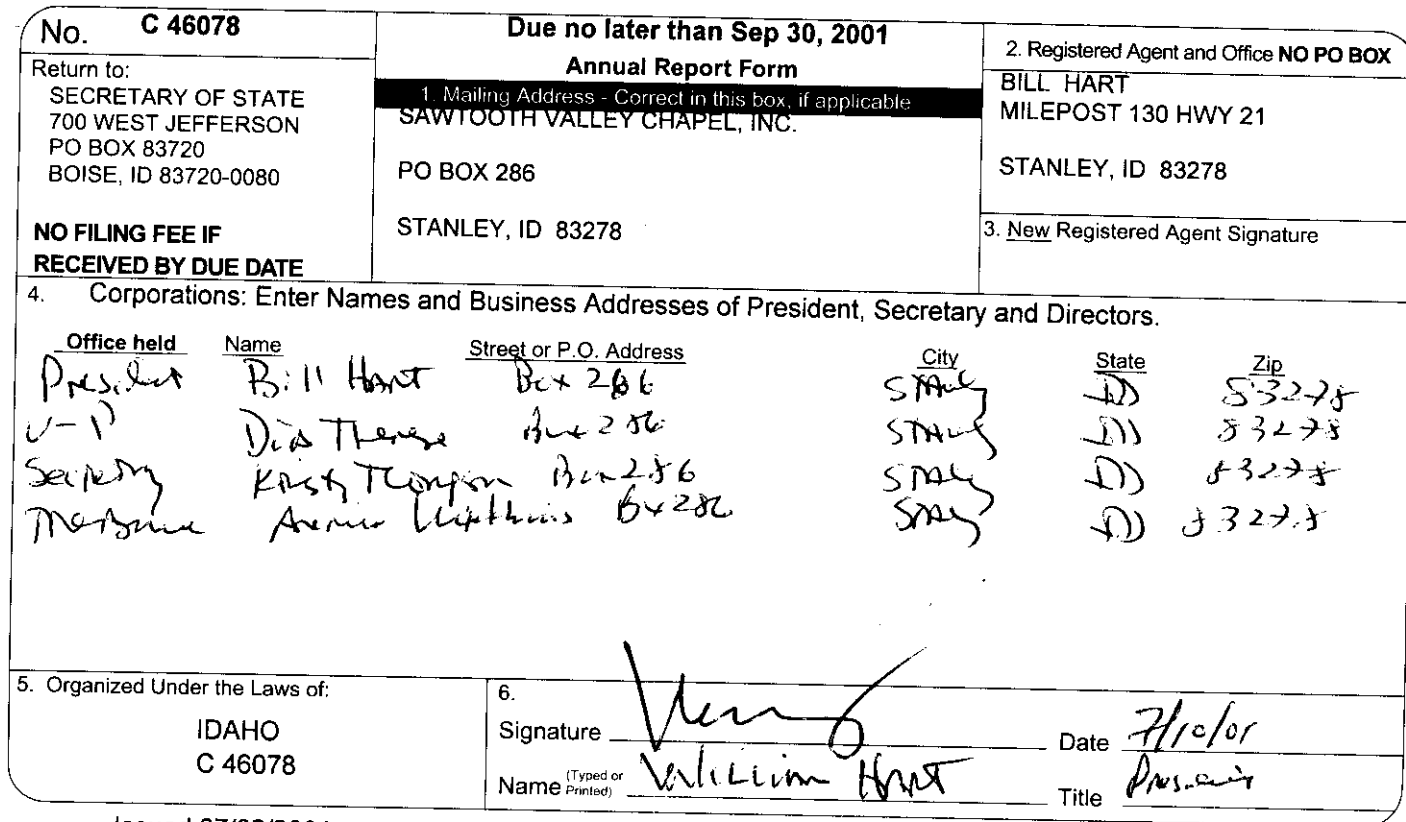 No. C 46078
Return to:
SECRETARY OF STATE
700 WEST JEFFERSON
PO BOX 83720
BOISE, ID 83720-0080
NO FILING FEE IF
RECEIVED BY DUE DATE
Due no later than Sep 30, 2001
Annual Report Form
1. Mailing Address - Correct in this box, if applicable
SAWTOOTH VALLEY CHAPEL, INC.
PO BOX 286
STANLEY, ID 83278
2. Registered Agent and Office NO PO BOX
BILL HART
MILEPOST 130 HWY 21
STANLEY, ID 83278
3. New Registered Agent Signature
4. Corporations: Enter Names and Business Addresses of President, Secretary and Directors.
Office held Name Street or P.O. Address City State Zip
President Bill Hart Box 286 Stanley ID 83278
V-P Box 286 Stanley ID 83278
Secretary Kristy Thompson Box 286 Stanley ID 83278
Box 286 Stanley ID 83278
5. Organized Under the Laws of:
IDAHO
C 46078
6.
Signature Date 7/10/01
Name (Typed or Printed) William Hart Title President